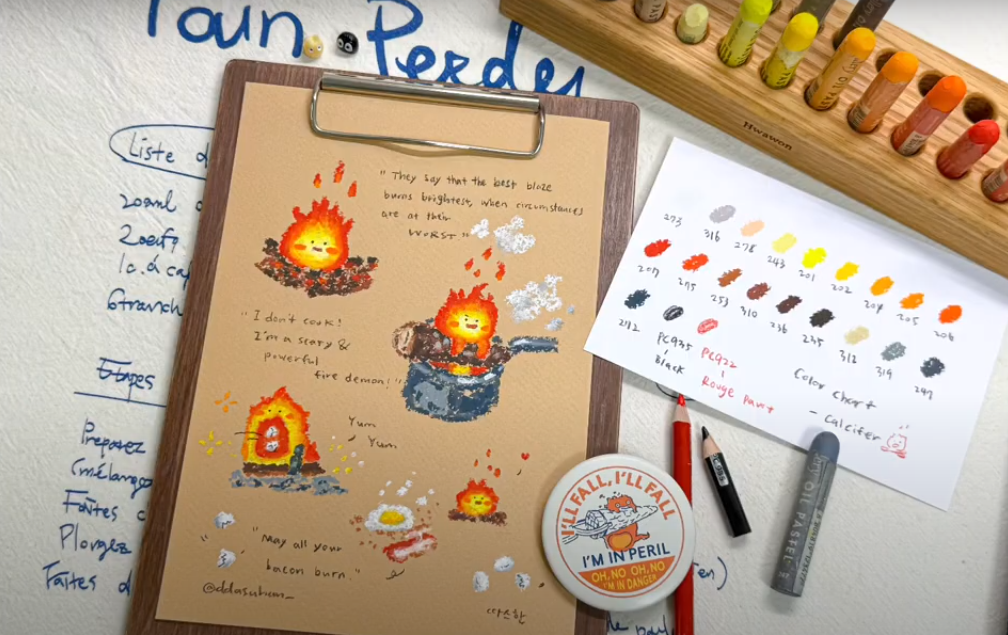 Pain Perdu
Liste d
200ml d
2oeufs
1c.à caf
6tranch
Etapes
Preparez
(mélangez
Faites c
Plongez
Faites d
" They say that the best blaze
burns brightest, when circumstances
are at their
WORST "
" I don't cook!
I'm a scary &
powerful
fire demon! "
Yum
Yum
" May all your
bacon burn. "
@ddasuhan_
따스한
Hwawon
273
316
278
243
201
202
204
205
206
207
215
253
310
236
235
312
319
247
242
PC935
Black
PC922
Rouge Pavot
Color chart
- Calcifer
I'LL FALL, I'LL FALL
I'M IN PERIL
OH, NO OH, NO
I'M IN DANGER
OIL PASTEL